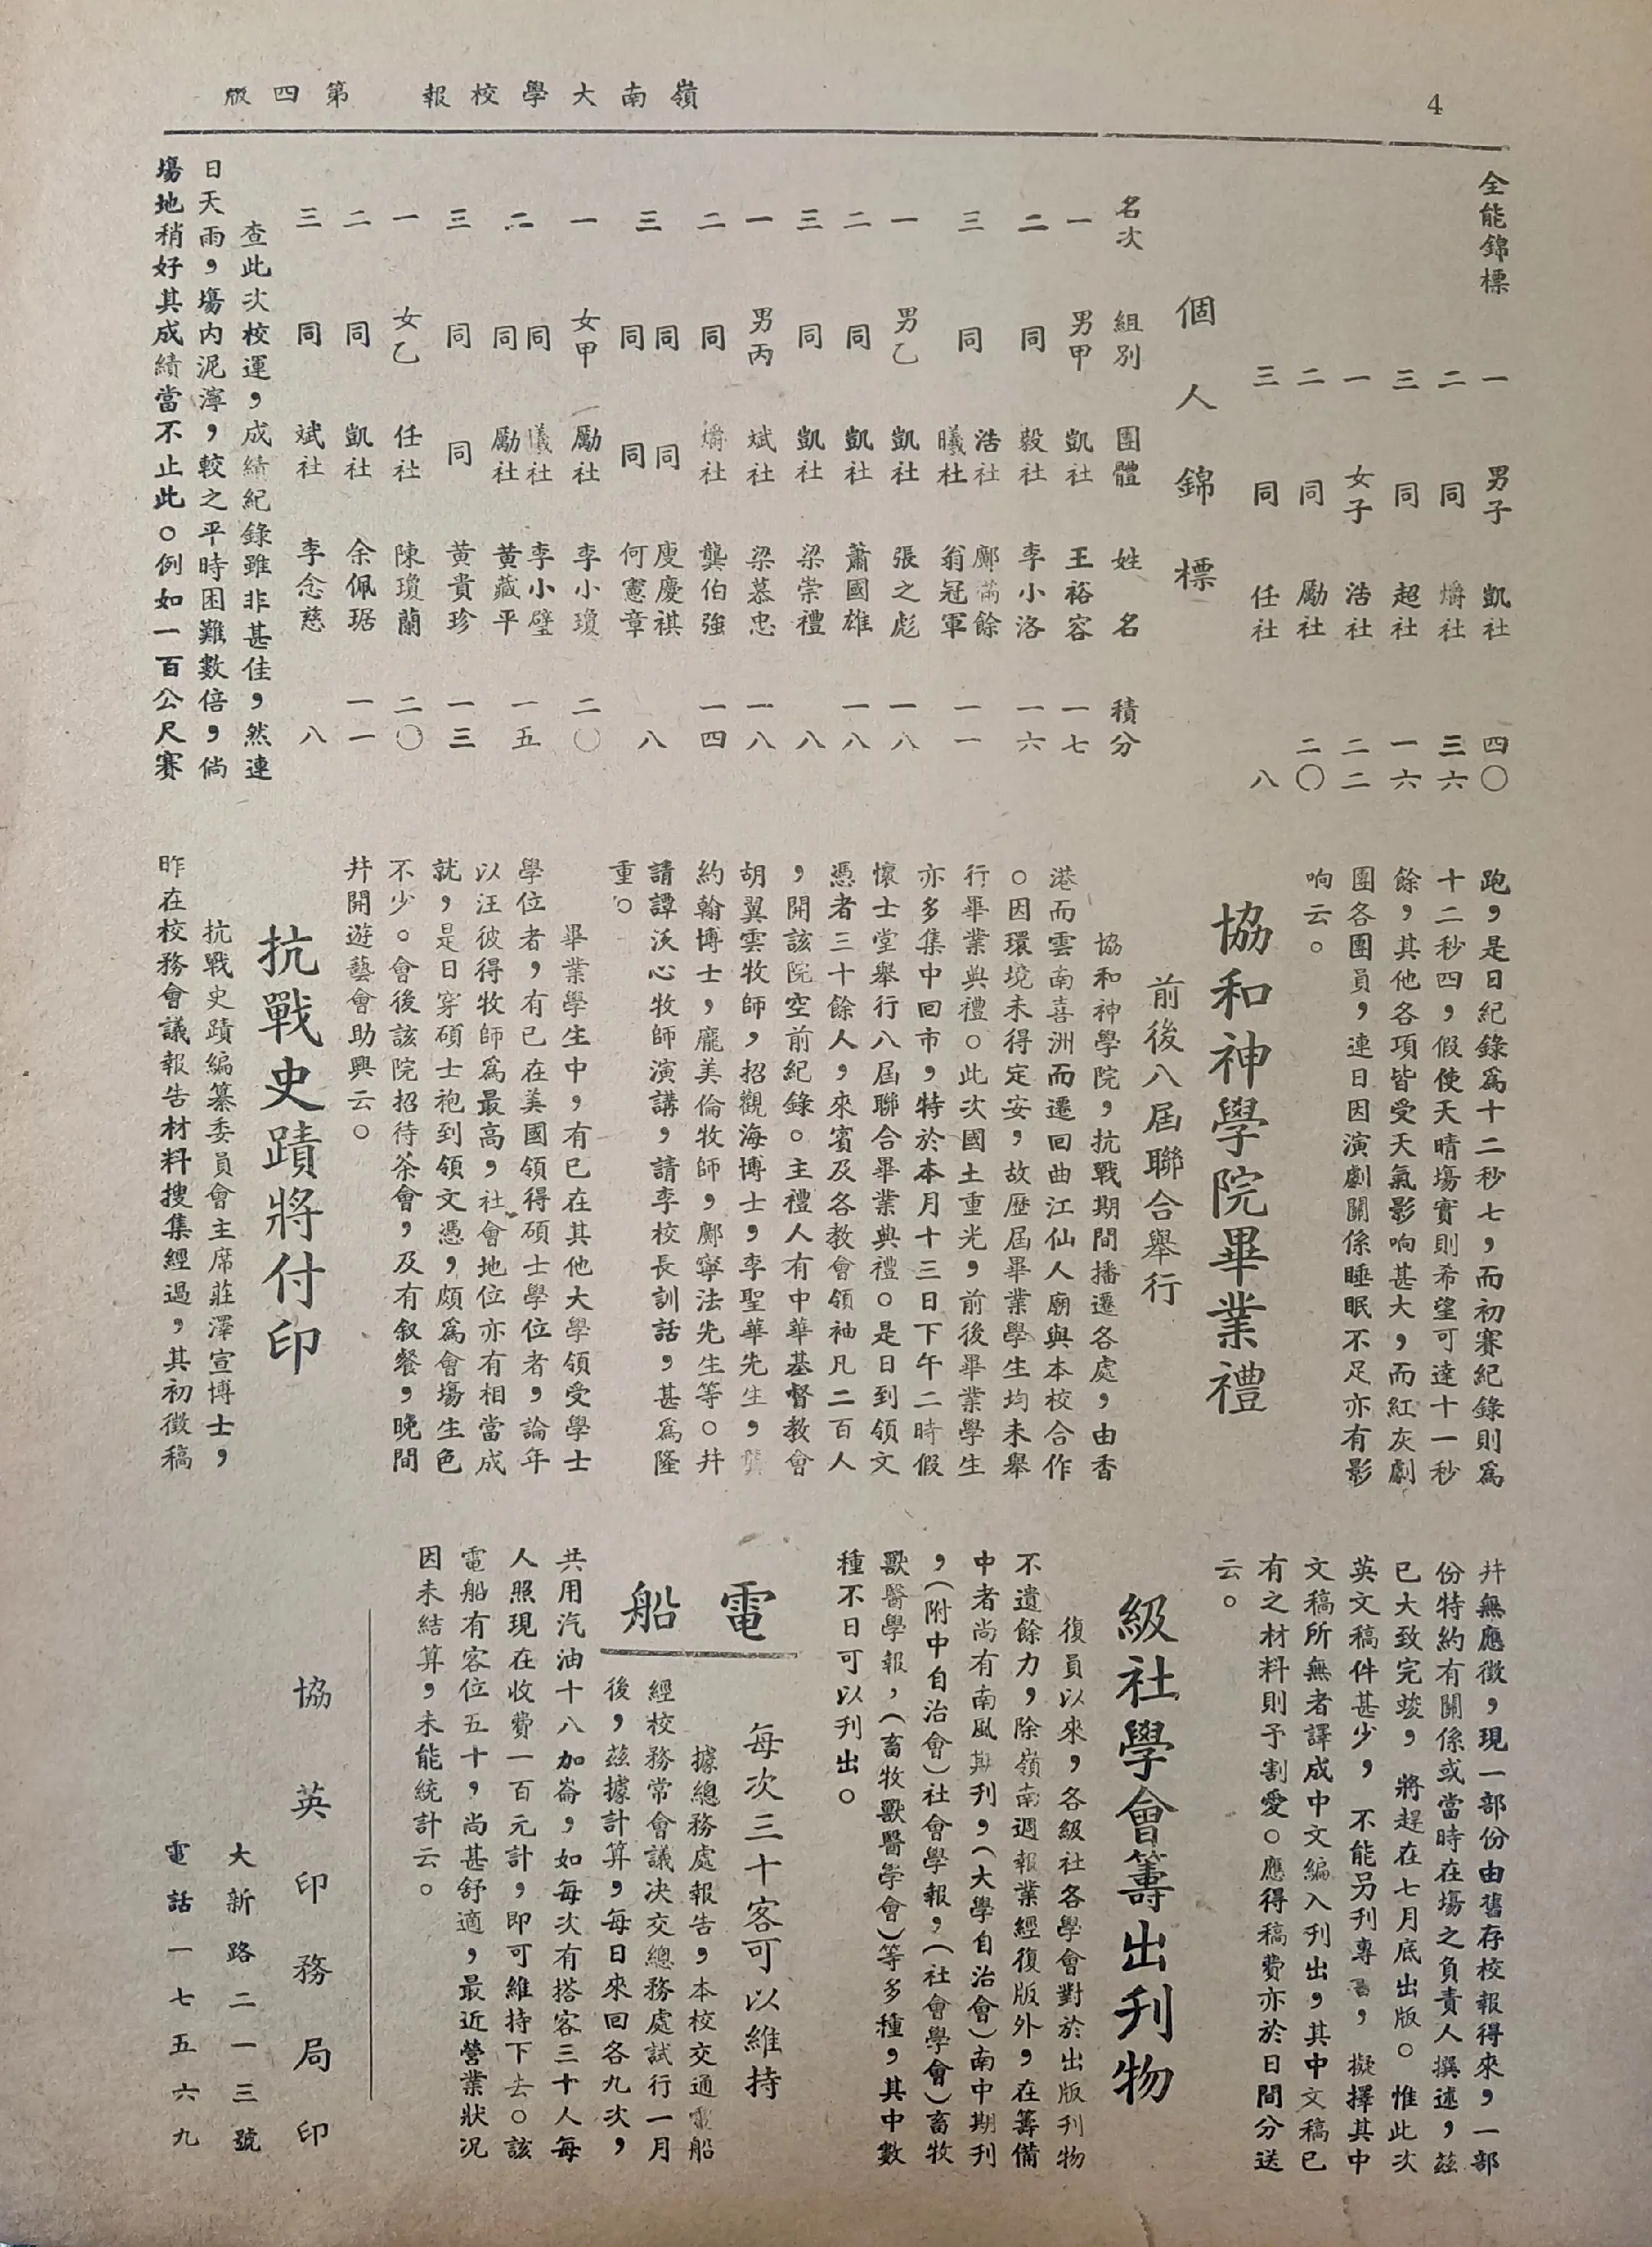 嶺南大學校報 第四版
4
全能錦標
一 男子 凱社 四〇
二 同 爝社 三六
三 同 超社 一六
一 女子 浩社 二二
二 同 勵社 二〇
三 同 任社 八
個人錦標
名次 組別 團體 姓名 積分
一 男甲 凱社 王裕容 一七
二 同 毅社 李小洛 一六
三 同 浩社 鄺滿餘 一一
曦社 翁冠軍
一 男乙 凱社 張之彪 一八
二 同 凱社 蕭國雄 一八
三 同 凱社 梁崇禮 八
一 男丙 斌社 梁慕忠 一八
二 同 爝社 龔伯強 一四
三 同 同 庋慶祺 八
同 同 何憲章
一 女甲 勵社 李小瓊 二〇
二 同 曦社 李小璧 一五
同 勵社 黃藏平
三 同 同 黃貴珍 一三
一 女乙 任社 陳瓊蘭 二〇
二 同 凱社 余佩琚 一一
三 同 斌社 李念慈 八
查此次校運，成績紀錄雖非甚佳，然連
日天雨，塲内泥濘，較之平時困難數倍，倘
塲地稍好其成績當不止此。例如一百公尺賽
跑，是日紀錄爲十二秒七，而初賽紀錄則爲
十二秒四，假使天晴塲實則希望可達十一秒
餘，其他各項皆受天氣影响甚大，而紅灰劇
團各團員，連日因演劇關係睡眠不足亦有影
响云。
協和神學院畢業禮
前後八屆聯合舉行
協和神學院，抗戰期間播遷各處，由香
港而雲南喜洲而遷回曲江仙人廟與本校合作
。因環境未得定安，故歷屆畢業學生均未舉
行畢業典禮。此次國土重光，前後畢業學生
亦多集中回市，特於本月十三日下午二時假
懷士堂舉行八屆聯合畢業典禮。是日到領文
憑者三十餘人，來賓及各教會領袖凡二百人
，開該院空前紀錄。主禮人有中華基督教會
胡翼雲牧師，招觀海博士，李聖華先生，龔
約翰博士，龐美倫牧師，鄺寧法先生等。幷
請譚沃心牧師演講，請李校長訓話，甚爲隆
重。
畢業學生中，有已在其他大學領受學士
學位者，有已在美國領得碩士學位者，論年
以汪彼得牧師爲最高，社會地位亦有相當成
就，是日穿碩士袍到領文憑，頗爲會塲生色
不少。會後該院招待茶會，及有叙餐，晚間
幷開遊藝會助興云。
抗戰史蹟將付印
抗戰史蹟編纂委員會主席莊澤宣博士，
昨在校務會議報告材料搜集經過，其初徵稿
幷無應徵，現一部份由舊存校報得來，一部
份特約有關係或當時在塲之負責人撰述，茲
已大致完竣，將趕在七月底出版。惟此次
英文稿件甚少，不能另刋專書，擬擇其中
文稿所無者譯成中文編入刋出，其中文稿已
有之材料則予割愛。應得稿費亦於日間分送
云。
級社學會籌出刋物
復員以來，各級社各學會對於出版刋物
不遺餘力，除嶺南週報業經復版外，在籌備
中者尚有南風期刋，（大學自治會）南中期刋
，（附中自治會）社會學報，（社會學會）畜牧
獸醫學報，（畜牧獸醫學會）等多種，其中數
種不日可以刋出。
電船
每次三十客可以維持
據總務處報告，本校交通電船
經校務常會議决交總務處試行一月
後，茲據計算，每日來回各九次，
共用汽油十八加崙，如每次有搭客三十人每
人照現在收費一百元計，即可維持下去。該
電船有客位五十，尚甚舒適，最近營業狀況
因未結算，未能統計云。
協英印務局印
大新路二一三號
電話一七五六九